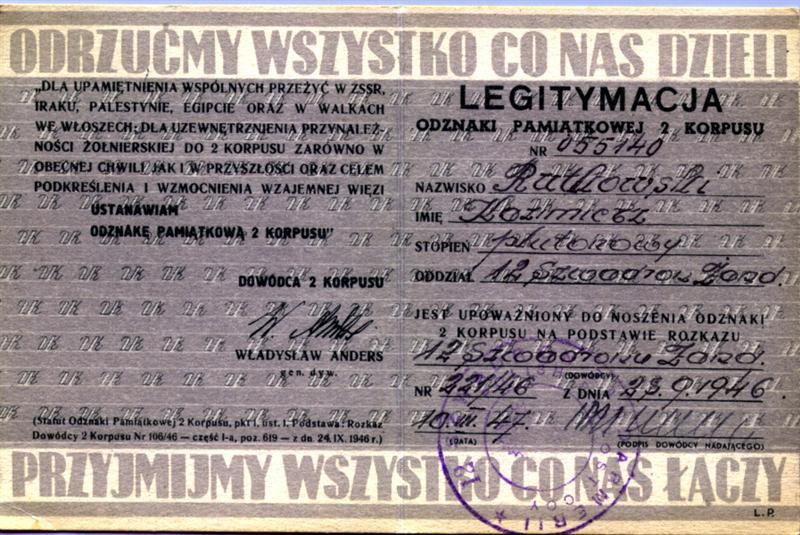 ODRZUĆMY WSZYSTKO CO NAS DZIELI
„DLA UPAMIĘTNIENIA WSPÓLNYCH PRZEŻYĆ W ZSSR,
IRAKU, PALESTYNIE, EGIPCIE ORAZ W WALKACH
WE WŁOSZECH; DLA UZEWNĘTRZNIENIA PRZYNALEŻ-
NOŚCI ŻOŁNIERSKIEJ DO 2 KORPUSU ZARÓWNO W
OBECNEJ CHWILI JAK I W PRZYSZŁOŚCI ORAZ CELEM
PODKREŚLENIA I WZMOCNIENIA WZAJEMNEJ WIĘZI
USTANAWIAM
ODZNAKĘ PAMIĄTKOWĄ 2 KORPUSU"
DOWÓDCA 2 KORPUSU
WŁADYSŁAW ANDERS
gen. dyw.
(Statut Odznaki Pamiątkowej 2 Korpusu, pkt 1. ust. 1. Podstawa: Rozkaz
Dowódcy 2 Korpusu Nr 106/46 – część I-a, poz. 619 – z dn. 24. IX. 1946 r.)
LEGITYMACJA
ODZNAKI PAMIĄTKOWEJ 2 KORPUSU
NR 055140
NAZWISKO Rutkowski
IMIĘ Kazimierz
STOPIEŃ plutonowy
ODDZIAŁ 12 Szwadron Żand.
JEST UPOWAŻNIONY DO NOSZENIA ODZNAKI
2 KORPUSU NA PODSTAWIE ROZKAZU
12 Szwadronu Żand.
(DOWÓDCY)
NR 221/46 Z DNIA 23.9.1946
10.III.47.
(DATA) (PODPIS DOWÓDCY NADAJĄCEGO)
PRZYJMIJMY WSZYSTKO CO NAS ŁĄCZY
L.P.